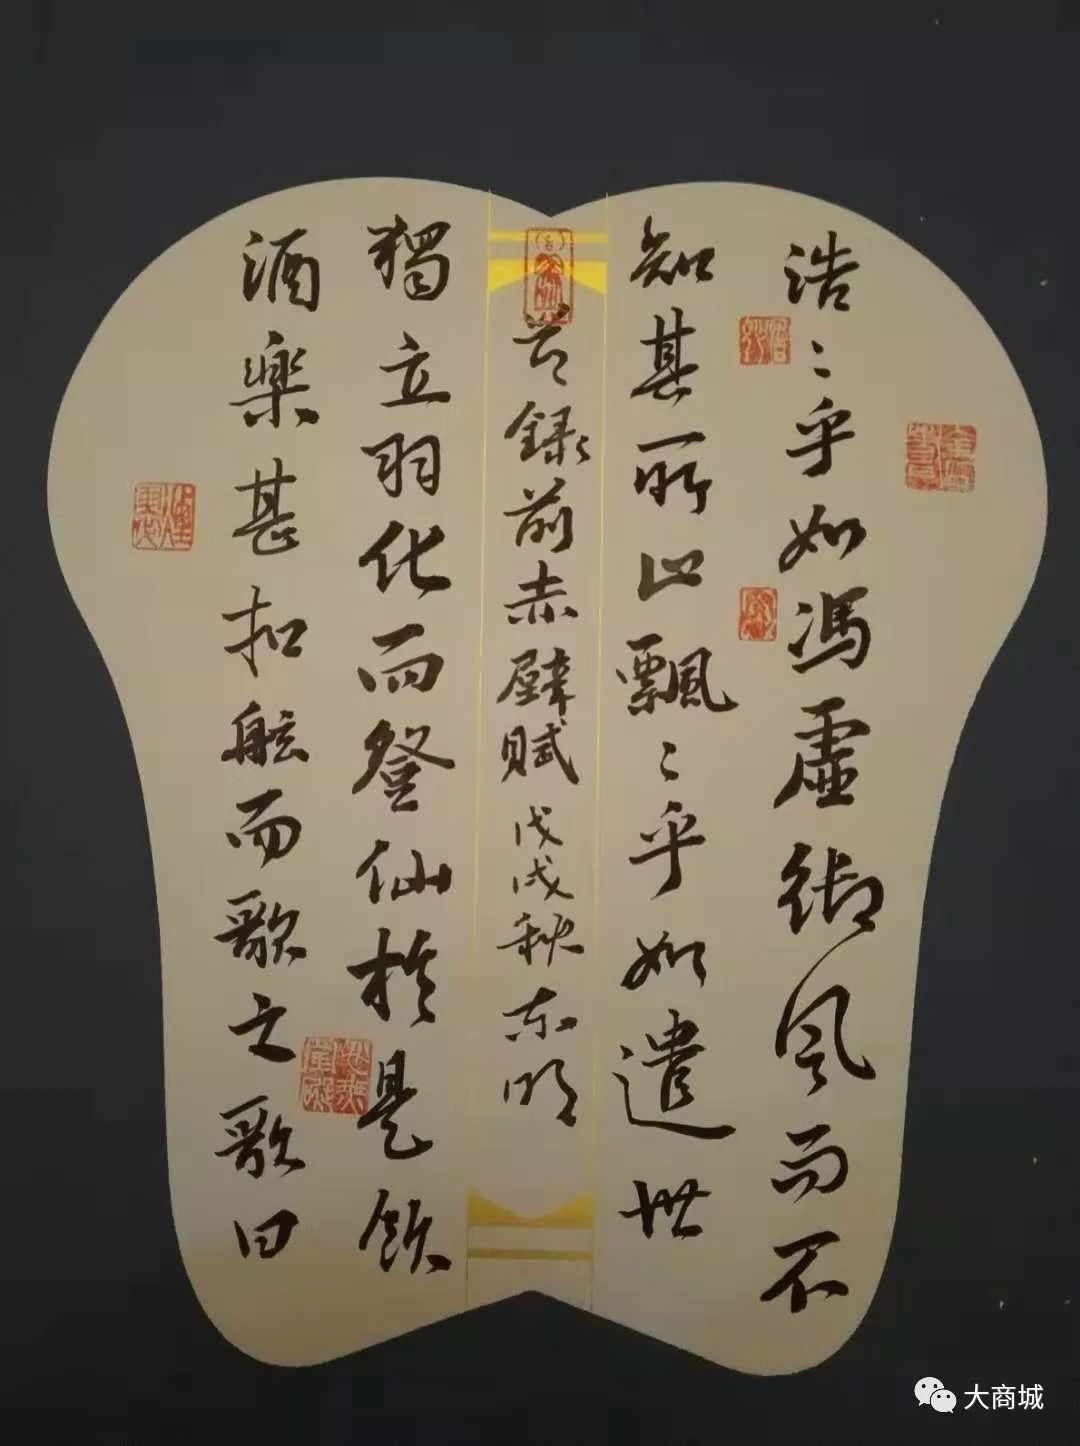 浩〻乎如馮虛御風而不
知其所止飄〻乎如遺世
節錄前赤壁賦戊戌秋东明
獨立羽化而登仙於是飲
酒樂甚扣舷而歌之歌曰
大商城